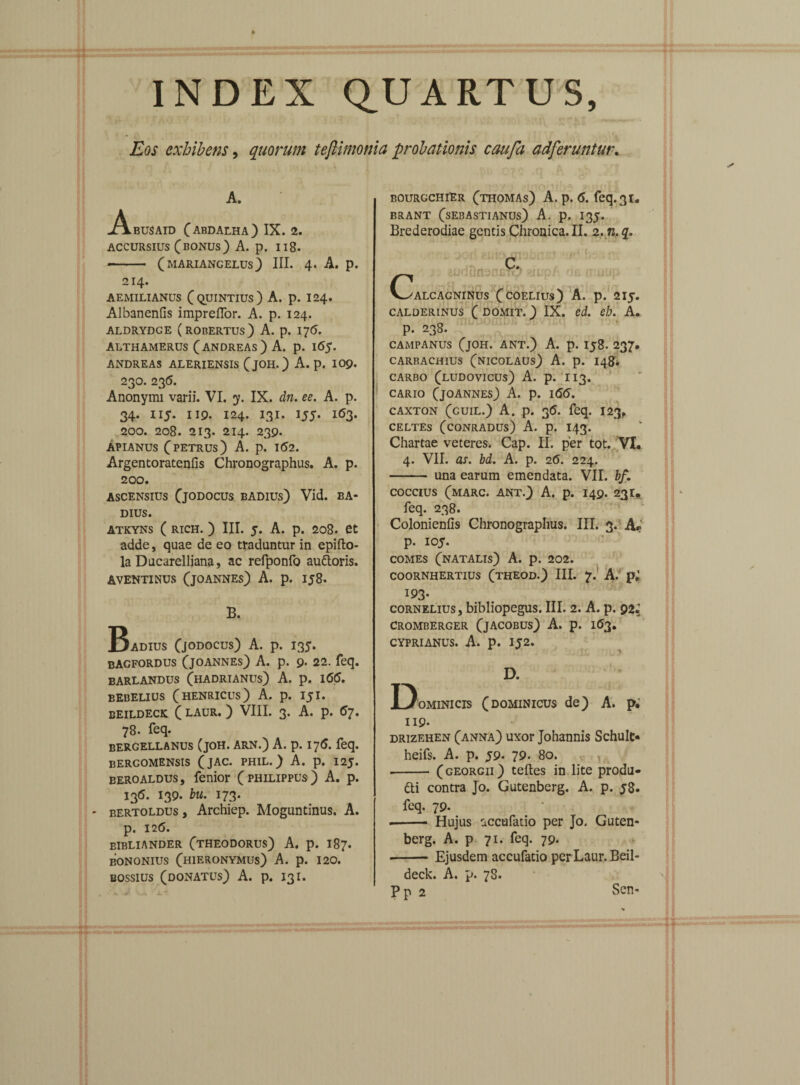 INDEX QUARTUS,
Eos exhibens, quorum teſtimonia probationis cauſa adferuntur.
A.
ABUSAID (ABDALHA) IX. 2.
ACCURSIUS (BONUS) A. p. 118.
—— (MARIANGELUS) III. 4. A. p.
214.
AEMILIANUS (QUINTIUS) A. p. 124.
Albanenſis impreſſor. A. p. 124.
ALDRYDGE (ROBERTUS) A. p. 176.
ALTHAMERUS (ANDREAS) A. p. 165.
ANDREAS ALERIENSIS (JOH.) A. p. 109.
230. 236.
Anonymi varii. VI. y. IX. dn. ee. A. p.
34. 115. 119. 124. 131. 155. 163.
200. 208. 213. 214. 239.
APIANUS (PETRUS) A. p. 162.
Argentoratenſis Chronographus. A. p.
200.
ASCENSIUS (JODOCUS BADIUS) Vid. BA-
DIUS.
ATKYNS (RICH.) III. 5. A. p. 208. et
adde, quae de eo traduntur in epiſto-
la Ducarelliana, ac reſponſo auctoris.
AVENTINUS (JOANNES) A. p. 158.
B.
BADIUS (JODOCUS) A. p. 135.
BAGFORDUS (JOANNES) A. p. 9. 22. ſeq.
BARLANDUS (HADRIANUS) A. p. 166.
BEBELIUS (HENRICUS) A. p. 151.
BEILDECK (LAUR.) VIII. 3. A. p. 67.
78. ſeq.
BERGELLANUS (JOH. ARN.) A. p. 176. ſeq.
BERGOMENSIS (JAC. PHIL.) A. p. 125.
BEROALDUS, ſenior (PHILIPPUS) A. p.
136. 139. bu. 173.
BERTOLDUS, Archiep. Moguntinus. A.
p. 126.
BIBLIANDER (THEODORUS) A. p. 187.
BONONIUS (HIERONYMUS) A. p. 120.
BOSSIUS (DONATUS) A. p. 131.
BOURGCHIER (THOMAS) A. p. 6. ſeq. 31.
BRANT (SEBASTIANUS) A. p. 135.
Brederodiae gentis Chronica. II. 2. n. q.
C.
CALCAGNINUS (COELIUS) A. p. 215.
CALDERINUS (DOMIT.) IX. ed. eb. A.
p. 238.
CAMPANUS (JOH. ANT.) A. p. 158. 237.
CARBACHIUS (NICOLAUS) A. p. 148.
CARBO (LUDOVICUS) A. p. 113.
CARIO (JOANNES) A. p. 166.
CAXTON (GUIL.) A. p. 36. ſeq. 123.
CELTES (CONRADUS) A. p. 143.
Chartae veteres. Cap. II. per tot. VI.
4. VII. as. bd. A. p. 26. 224.
—— una earum emendata. VII. bf.
COCCIUS (MARC. ANT.) A. p. 149. 231.
ſeq. 238.
Colonienſis Chronographus. III. 3. A.
p. 105.
COMES (NATALIS) A. p. 202.
COORNHERTIUS (THEOD.) III. 7. A. p.
193.
CORNELIUS, bibliopegus. III. 2. A. p. 92.
CROMBERGER (JACOBUS) A. p. 163.
CYPRIANUS. A. p. 152.
D.
DOMINICIS (DOMINICUS de) A. p.
119.
DRIZEHEN (ANNA) uxor Johannis Schult-
heiſs. A. p. 59. 79. 80.
—— (GEORGII) teſtes in lite produ-
cti contra Jo. Gutenberg. A. p. 58.
ſeq. 79.
—— Hujus accuſatio per Jo. Guten-
berg. A. p 71. ſeq. 79.
—— Ejusdem accuſatio per Laur. Beil-
deck. A. p. 78.
Pp 2 Sen-